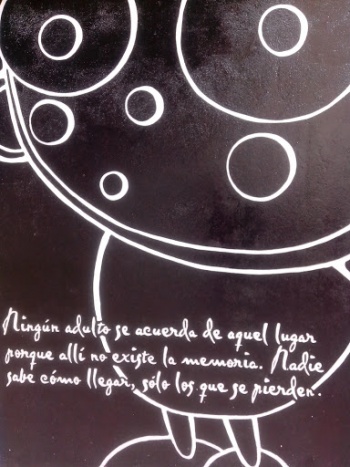 Ningún adulto se acuerda de aquel lugar
porque allí no existe la memoria. Nadie
sabe cómo llegar, sólo los que se pierden.